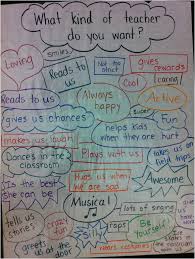 What kind of teacher
do you want?
Loving
smiles
Reads to
us
Not too
strict
gives
rewards
Cool
caring
Reads to us
Always
happy
Super
Active
gives us chances
fun
helps kids
when they
are sad
makes us laugh
Dances in the
classroom
Plays with us
takes us
on field
trips
Is the best
she can be
Hugs us when
we are sad
Awesome
Musical
tells us
stories
crazy
fun
lots of singing
sports
greets
us at the
door
nears costumes
Be
Yourself